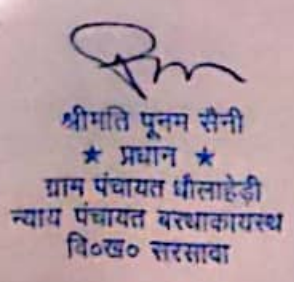 श्रीमति पूनम सैनी
★ प्रधान ★
ग्राम पंचायत धीलाहेड़ी
न्याय पंचायत बरथाकायस्थ
वि०ख० सरसावा